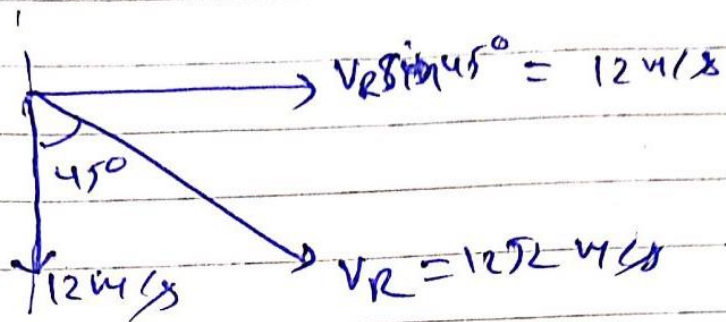 V_R sin 45° = 12 m/s
45°
12 m/s
V_R = 12√2 m/s